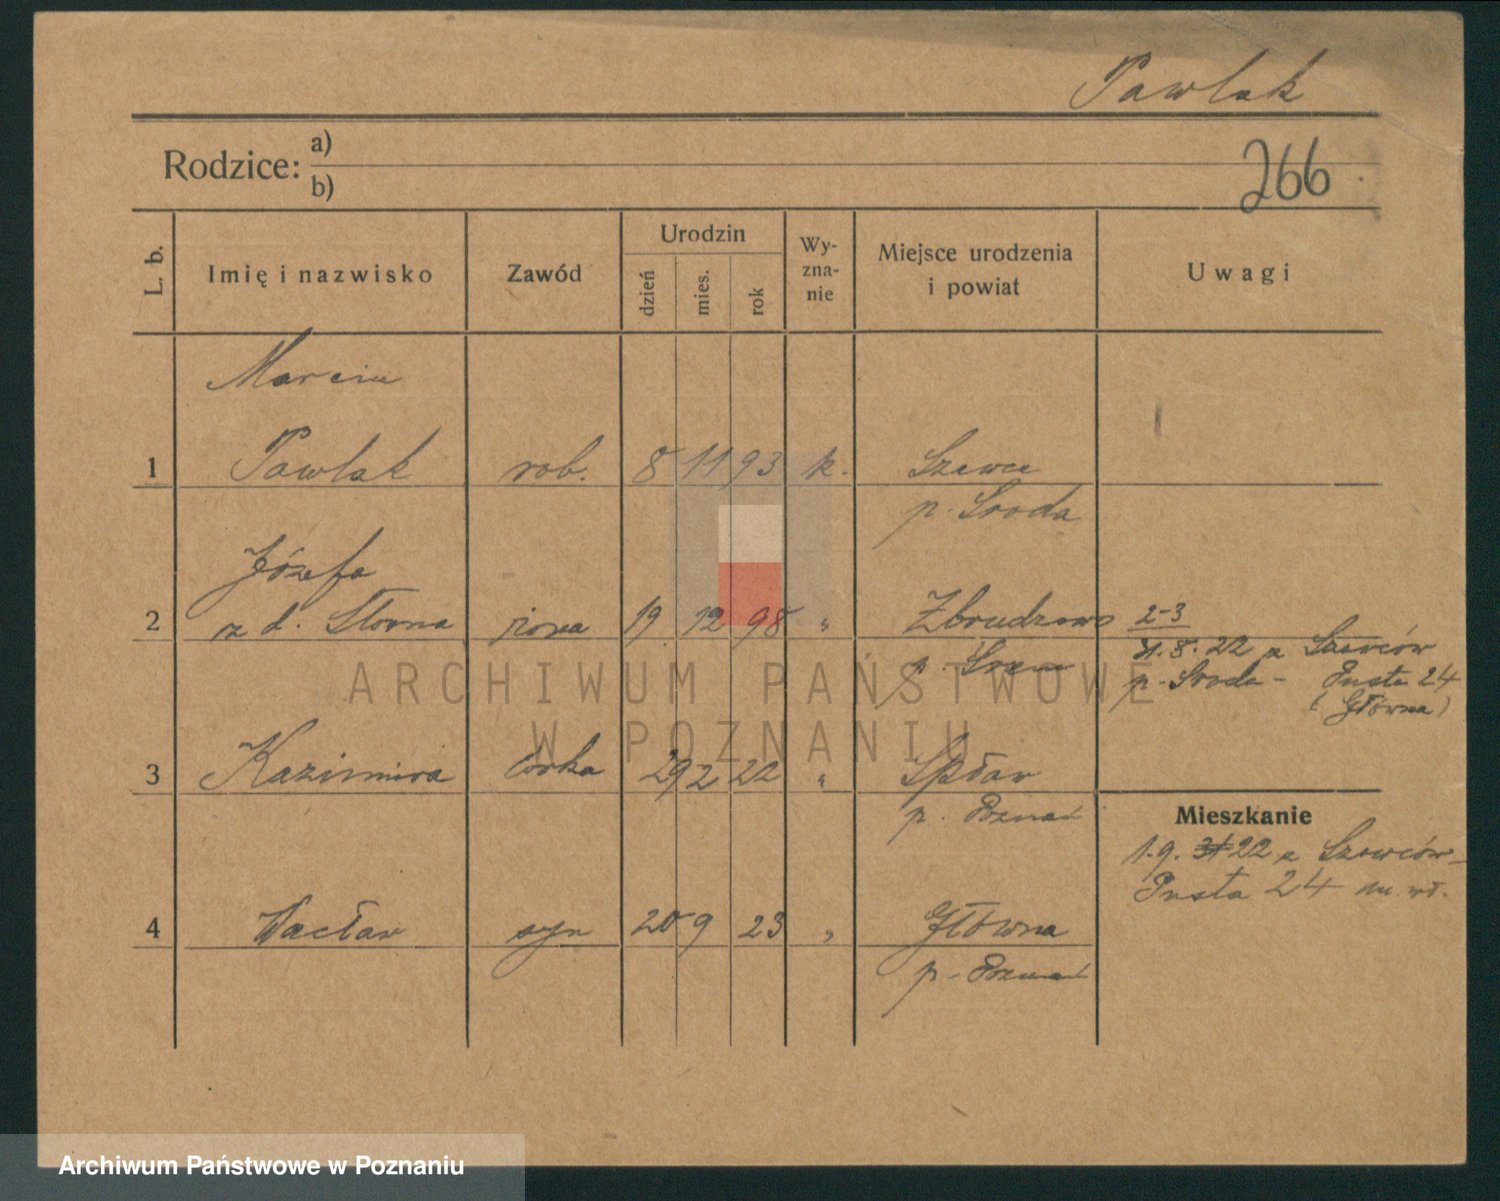 Pawlak
Rodzice: a)
b)
266
L. b.
Imię i nazwisko
Zawód
Urodzin
dzień
mies.
rok
Wy-
zna-
nie
Miejsce urodzenia
i powiat
Uwagi
Marcin
1 Pawlak rob. 8 11 93 k. Szewce
p. Sroda
Józefa
2 z d. Słowna żona 19 12 98 " Zbrudzewo 2-3
p. Szem 31.8.22 z Szewców
p. Sroda - Pusta 24
(Główna)
3 Kazimiera córka 29 2 22 " Spław
p. Poznań
Mieszkanie
1.9. 22 z Szewców-
Pusta 24 m. wł.
4 Wacław syn 20 9 23 " Główna
p. Poznań
ARCHIWUM PAŃSTWOWE
W POZNANIU
Archiwum Państwowe w Poznaniu